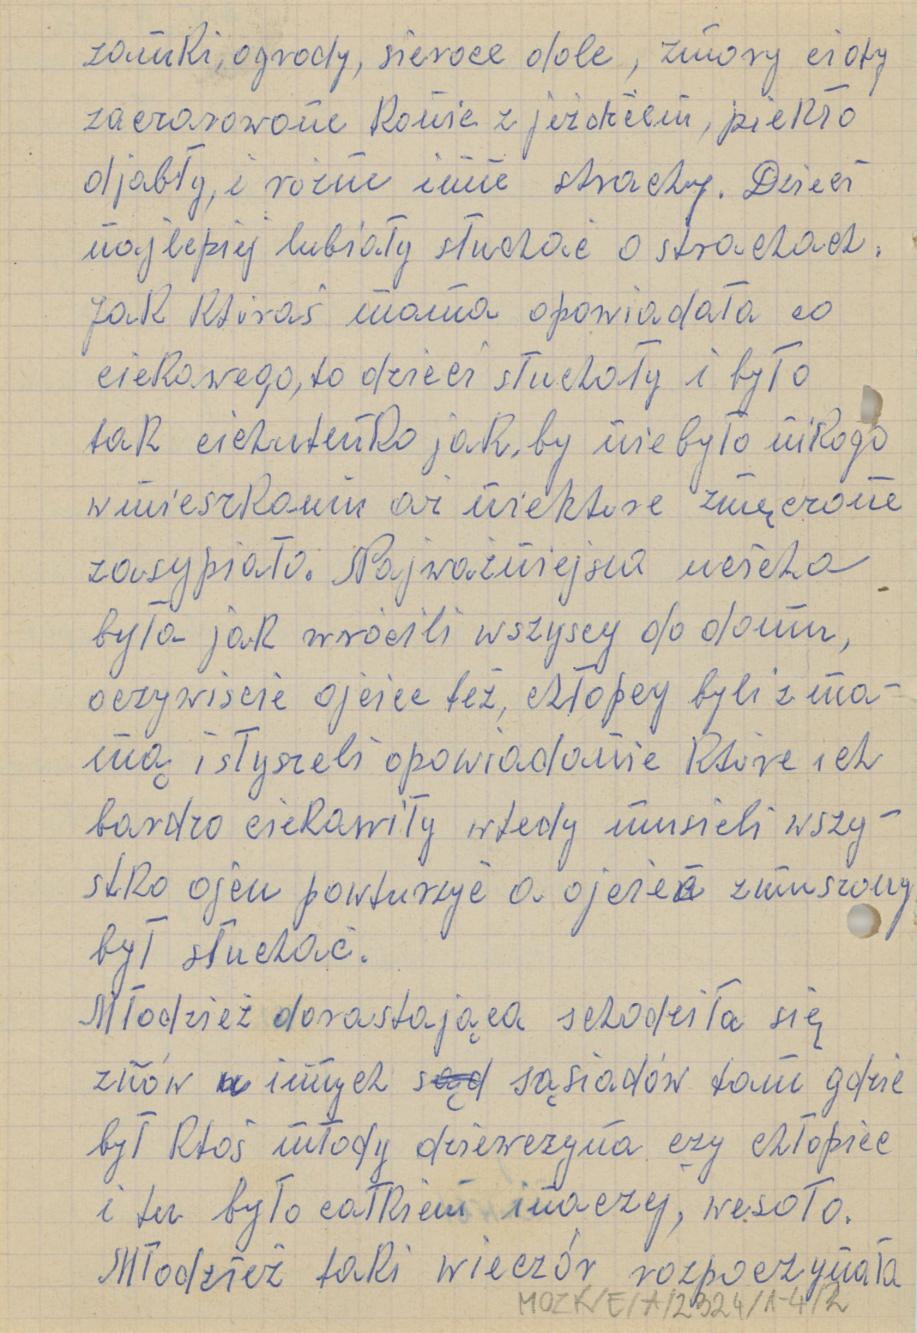 zamki, ogrody, sieroce dole, zmory cioty
zaczarowane konie z jeźdźcem, piekło
djabły, i rożne inne strachy. Dzieci
najlepiej lubiały słuchać o strachach.
Jak któraś mama opowiadała co
ciekawego, to dzieci słuchały i było
tak cichuteńko jak, by niebyło nikogo
wmieszkaniu aż niektore zmęczone
zasypiało. Najważniejsza uciecha
była jak wrócili wszyscy do domu,
oczywiscie ojciec też, chłopcy byli z ma-
mą i słyszeli opowiadanie które ich
bardzo ciekawiły wtedy musieli wszy-
stko ojcu powturzyć a ojciec zmuszony
był słuchać.
Młodzież dorastająca schodziła się
znów u innych sąd sąsiadów tam gdzie
był ktoś młody dziewczyna czy chłopiec
i tu było całkiem inaczej, wesoło.
Młodzież taki wieczór rozpoczynała
MOZK/E/A/2324/1-4/2